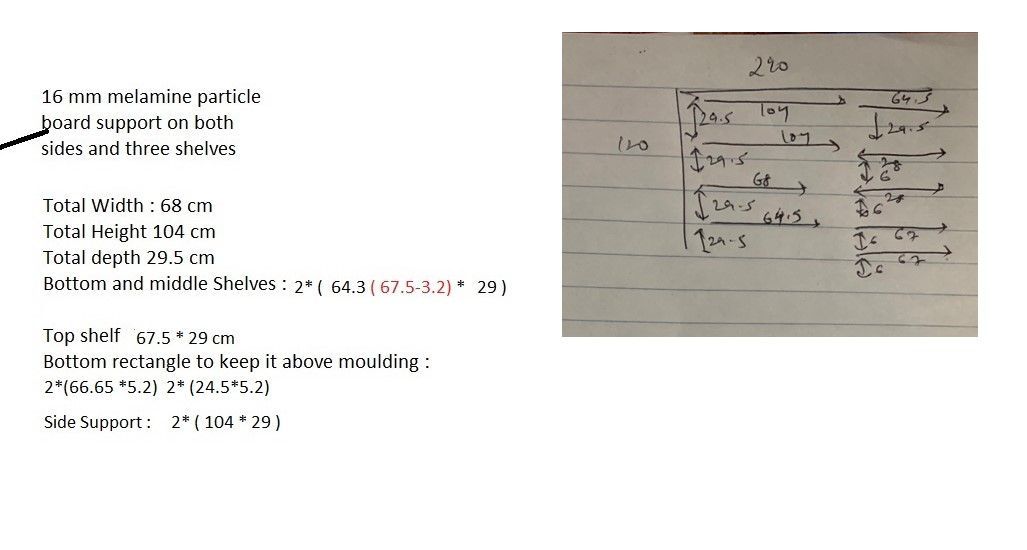 16 mm melamine particle
board support on both
sides and three shelves
Total Width : 68 cm
Total Height 104 cm
Total depth 29.5 cm
Bottom and middle Shelves : 2* ( 64.3 ( 67.5-3.2) * 29 )
Top shelf 67.5 * 29 cm
Bottom rectangle to keep it above moulding :
2*(66.65 *5.2) 2* (24.5*5.2)
Side Support : 2* ( 104 * 29 )
220
120
104 64.5
29.5 29.5
107
29.5 28
6
68
29.5 6 28
64.5
29.5 6 67
6 67